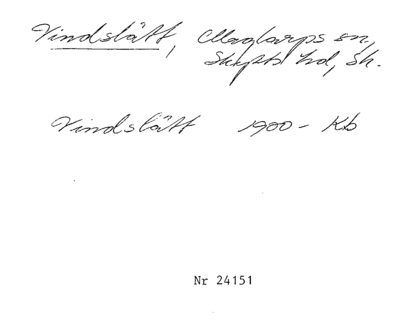 Vindslätt, Maglarps sn,
Skytts hd, Sk.
Vindslätt 1900 - Kb
Nr 24151